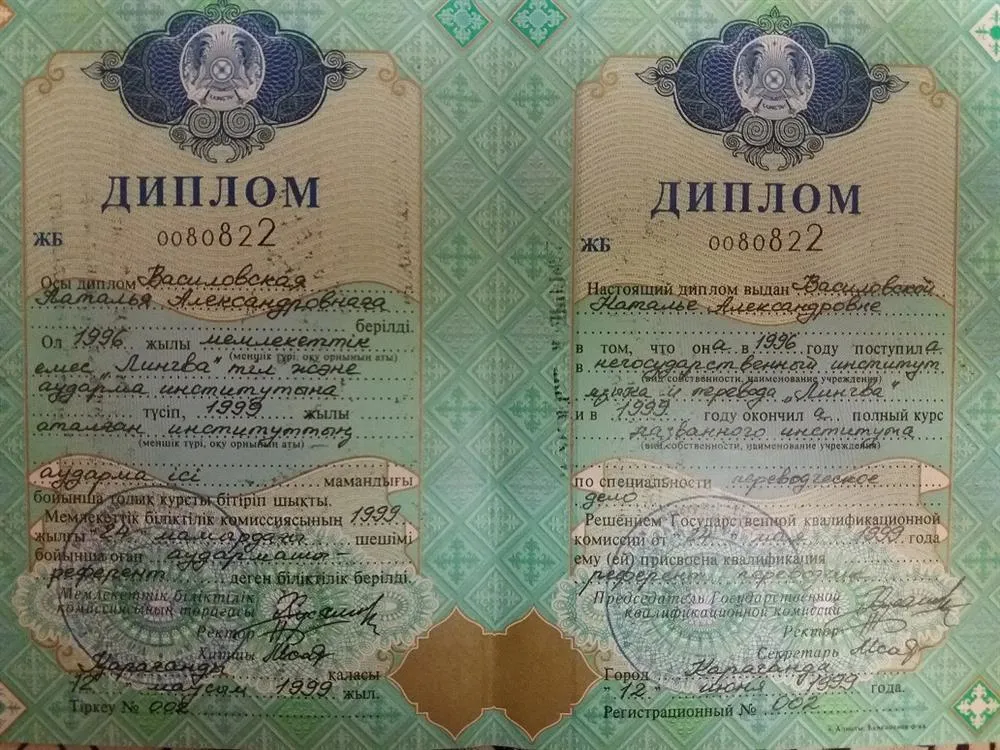 ДИПЛОМ
ЖБ 0080822
Осы диплом Василовская
Наталья Александровнаға
берілді.
Ол 1996 жылы мемлекеттік
(меншік түрі, оқу орнының аты)
емес "Лингва" тіл және
аударма институтына
түсіп, 1999 жылы
аталған институттың
(меншік түрі, оқу орнының аты)
аударма ісі мамандығы
бойынша толық курсты бітіріп шықты.
Мемлекеттік біліктілік комиссиясының 1999
жылғы "24" мамырдағы шешімі
бойынша оған аудармашы-
референт деген біліктілік берілді.
Мемлекеттік біліктілік
комиссиясының төрағасы
Ректор
Хатшы
Қарағанды қаласы
12 маусым 1999 жыл.
Тіркеу № 002
ДИПЛОМ
ЖБ 0080822
Настоящий диплом выдан Василовской
Наталье Александровне
в том, что она в 1996 году поступила
в негосударственный институт
(вид собственности, наименование учреждения)
языка и перевода "Лингва"
и в 1999 году окончила полный курс
названного института
(вид собственности, наименование учреждения)
по специальности переводческое
дело
Решением Государственной квалификационной
комиссии от "24" мая 1999 года
ему (ей) присвоена квалификация
референт
Председатель Государственной
квалификационной комиссии
Ректор
Секретарь
Город Караганда
"12" июня 1999 года.
Регистрационный № 002